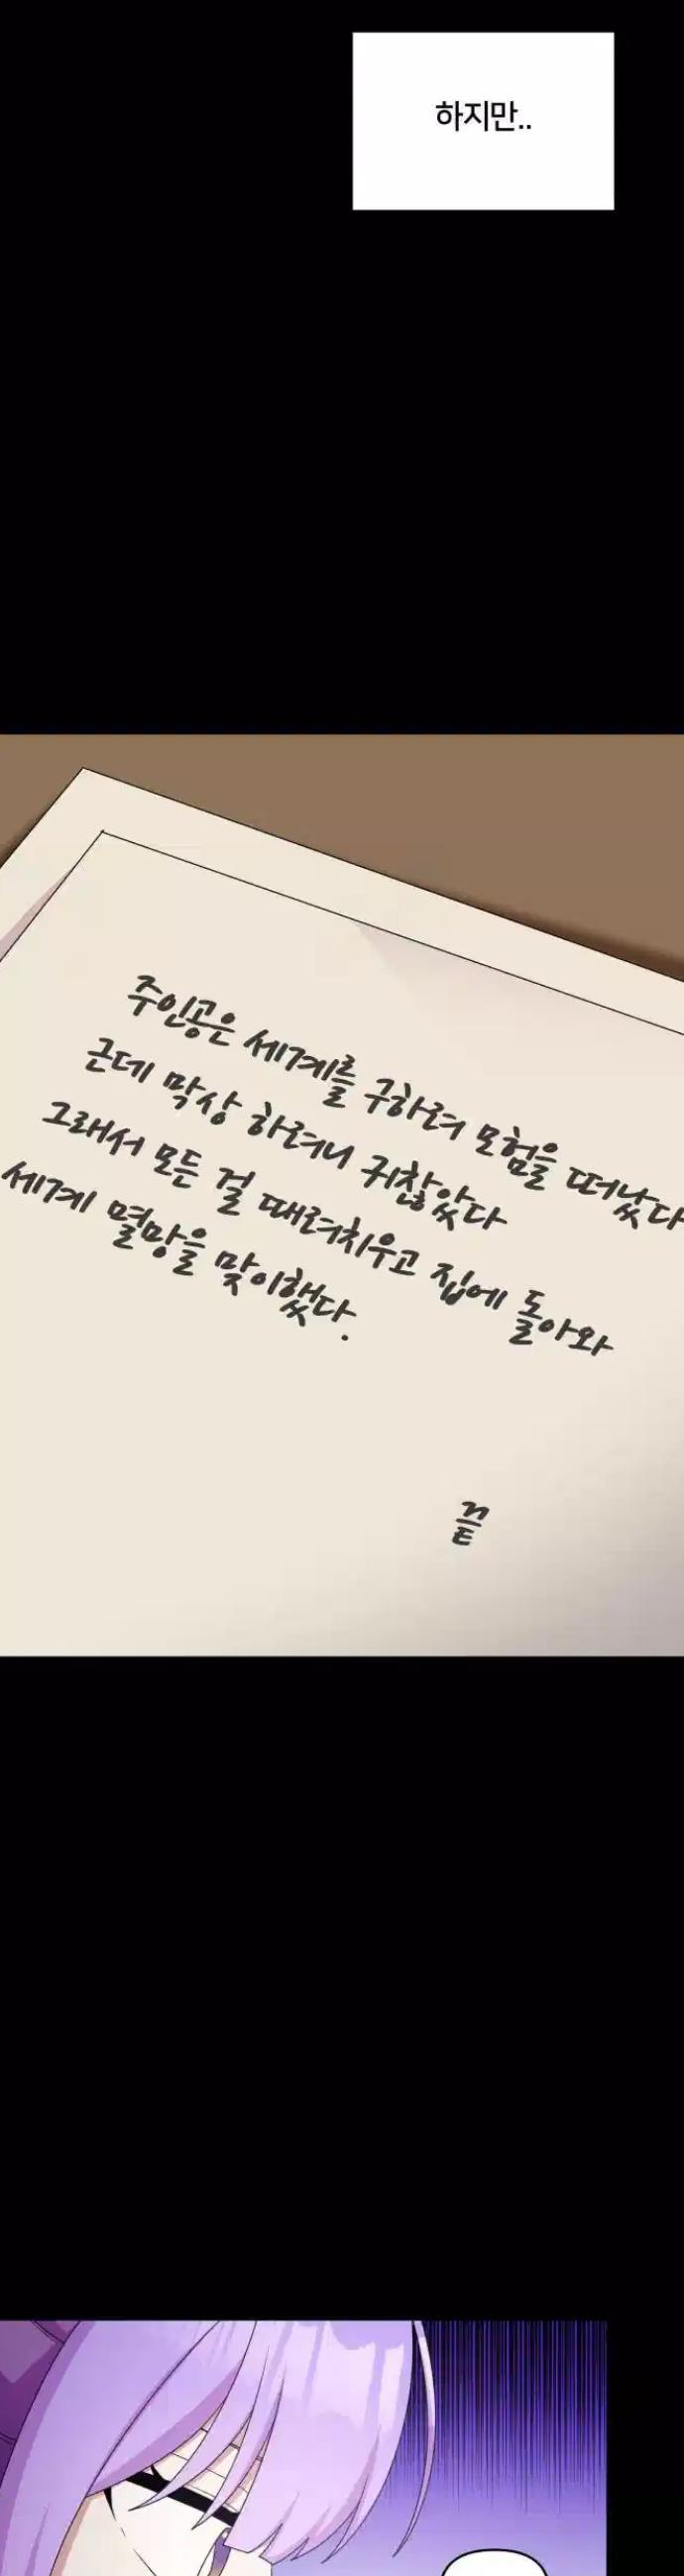 하지만..
주인공은 세계를 구하려 모험을 떠났다
근데 막상 하려니 귀찮았다
그래서 모든 걸 때려치우고 집에 돌아와
세계 멸망을 맞이했다.
끝